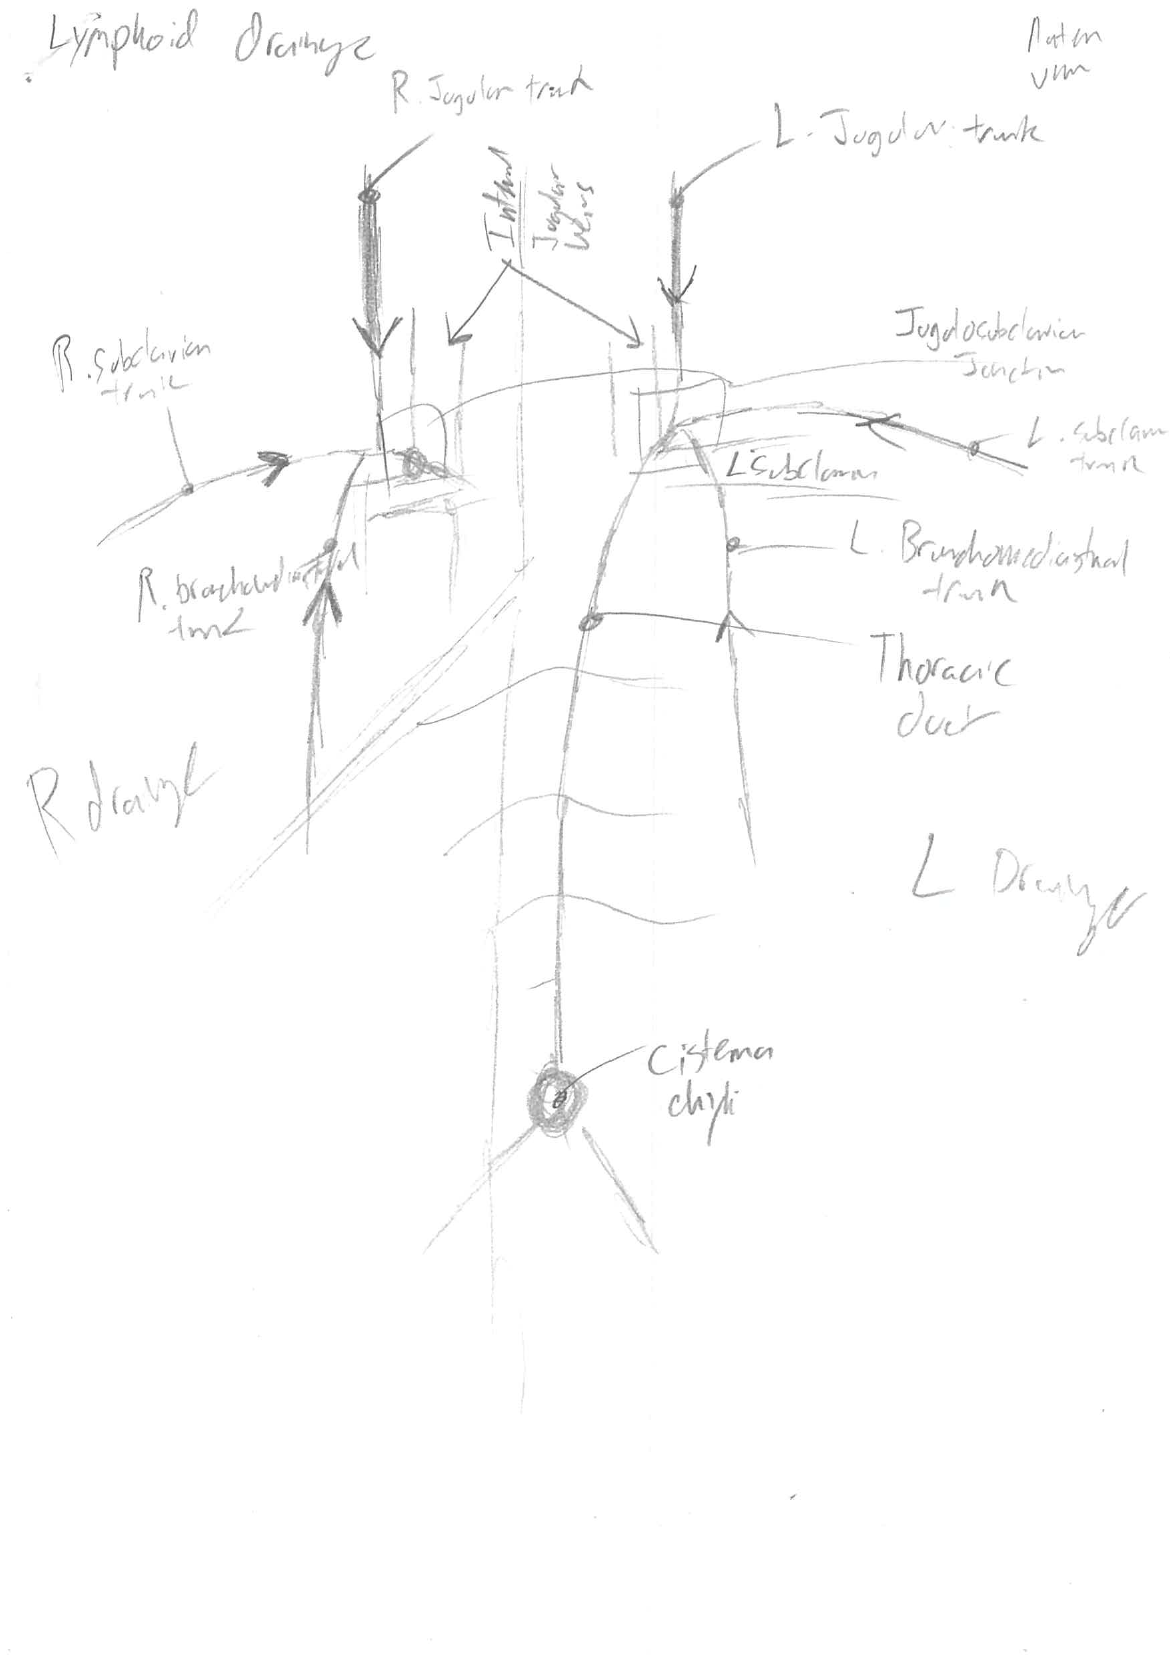 Lymphoid drainage
R. Jugular trunk
L. Jugular trunk
Internal
Jugular
Veins
R. subclavian
trunk
Jugulosubclavian
Junction
L. subclavian
trunk
L subclavian
L. Bronchomediastinal
trunk
R. bronchomediastinal
trunk
Thoracic
duct
R drainage
L Drainage
Cisterna
chyli